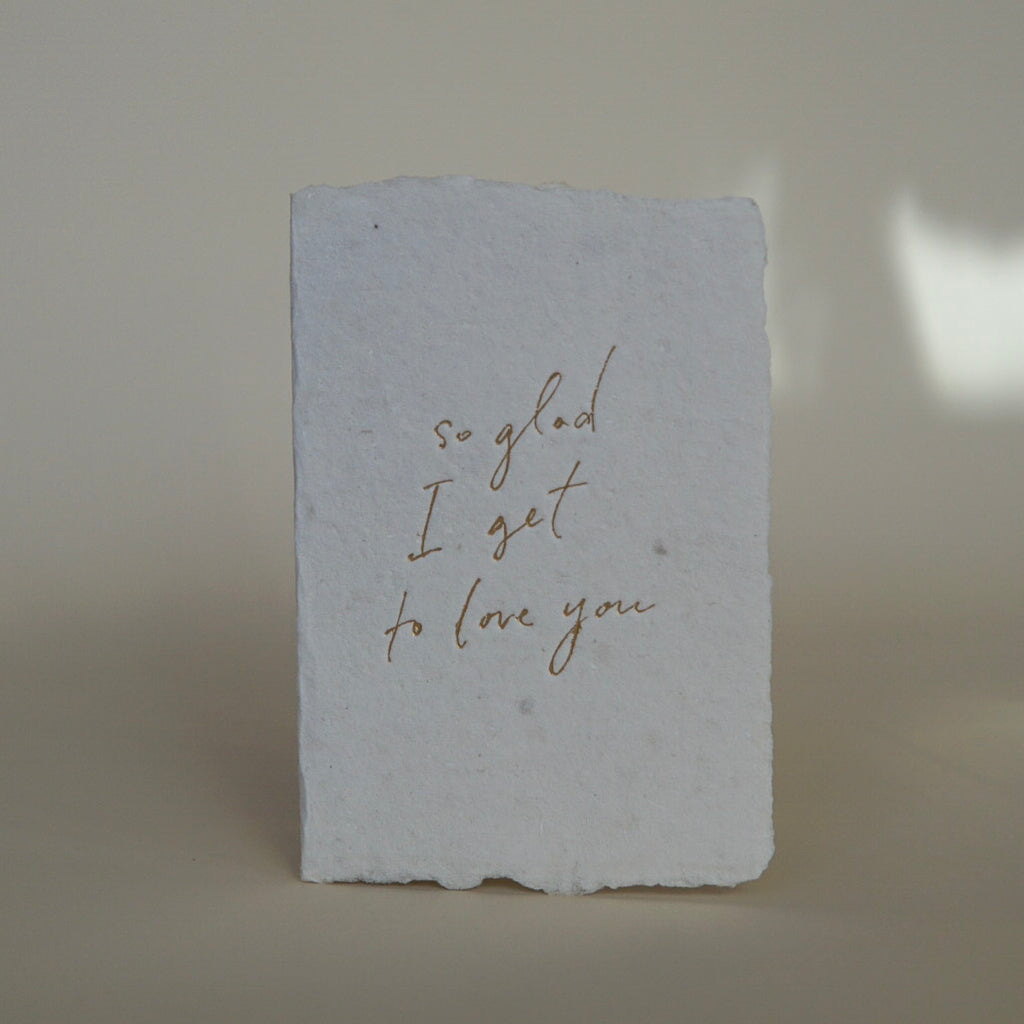 so glad
I get
to love you